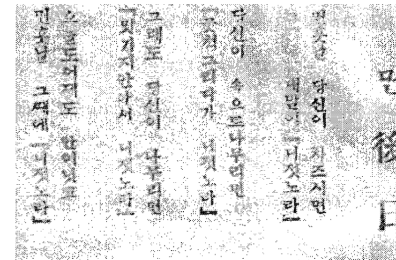 먼 後日
먼훗날 당신이 차즈시면
내말이 「니젓노라」
당신이 속으로나무리면
「무척그리다가 니젓노라」
그래도 당신이 나무리면
「밋기지안아서 니젓노라」
오늘도어제도 안이닛고
먼훗날 그때에 「니젓노라」